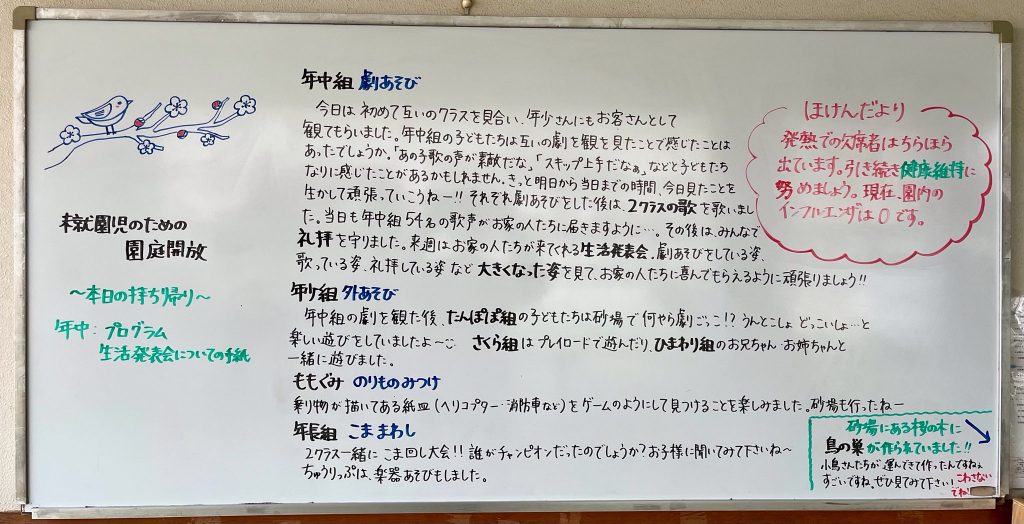 未就園児のための
園庭開放
～本日の持ち帰り～
年中：プログラム
生活発表会についての手紙
年中組 劇あそび
今日は、初めて互いのクラスを見合い、年少さんにもお客さんとして
観てもらいました。年中組の子どもたちは互いの劇を観を見たことで感じたことは
あったでしょうか。「あの子歌の声が素敵だな。」「スキップ上手だなぁ。」などと子どもたち
なりに感じたことがあるかもしれません。きっと明日から当日までの時間、今日見たことを
生かして頑張っていこうねー!! それぞれ劇あそびをした後は、2クラスの歌を歌いまし
た。当日も年中組54名の歌声がお家の人たちに届きますように…。その後は、みんなで
礼拝を守りました。来週はお家の人たちが来てくれる生活発表会。劇あそびをしている姿、
歌っている姿、礼拝している姿など大きくなった姿を見て、お家の人たちに喜んでもらえるように頑張りましょう!!
年少組 外あそび
年中組の劇を観た後、たんぽぽ組の子どもたちは砂場で何やら劇ごっこ!? うんとこしょ どっこいしょ…と
楽しい遊びをしていましたよ～ さくら組はプレイロードで遊んだり、ひまわり組のお兄ちゃん・お姉ちゃんと
一緒に遊びました。
ももぐみ のりものみつけ
乗り物が描いてある紙皿（ヘリコプター・消防車など）をゲームのようにして見つけることを楽しみました。砂場も行ったねー
年長組 こままわし
2クラス一緒に こま回し大会!! 誰がチャンピオンだったのでしょうか? お子様に聞いてみて下さいね～
ちゅうりっぷは、楽器あそびもしました。
ほけんだより
発熱での欠席者はちらほら
出ています。引き続き健康維持に
努めましょう。現在、園内の
インフルエンザは0です。
砂場にある桜の木に
鳥の巣が作られていました!!
小鳥さんたちが運んできて作ったんですねぇ
すごいですね。ぜひ見てみて下さい! こわさない
でね!